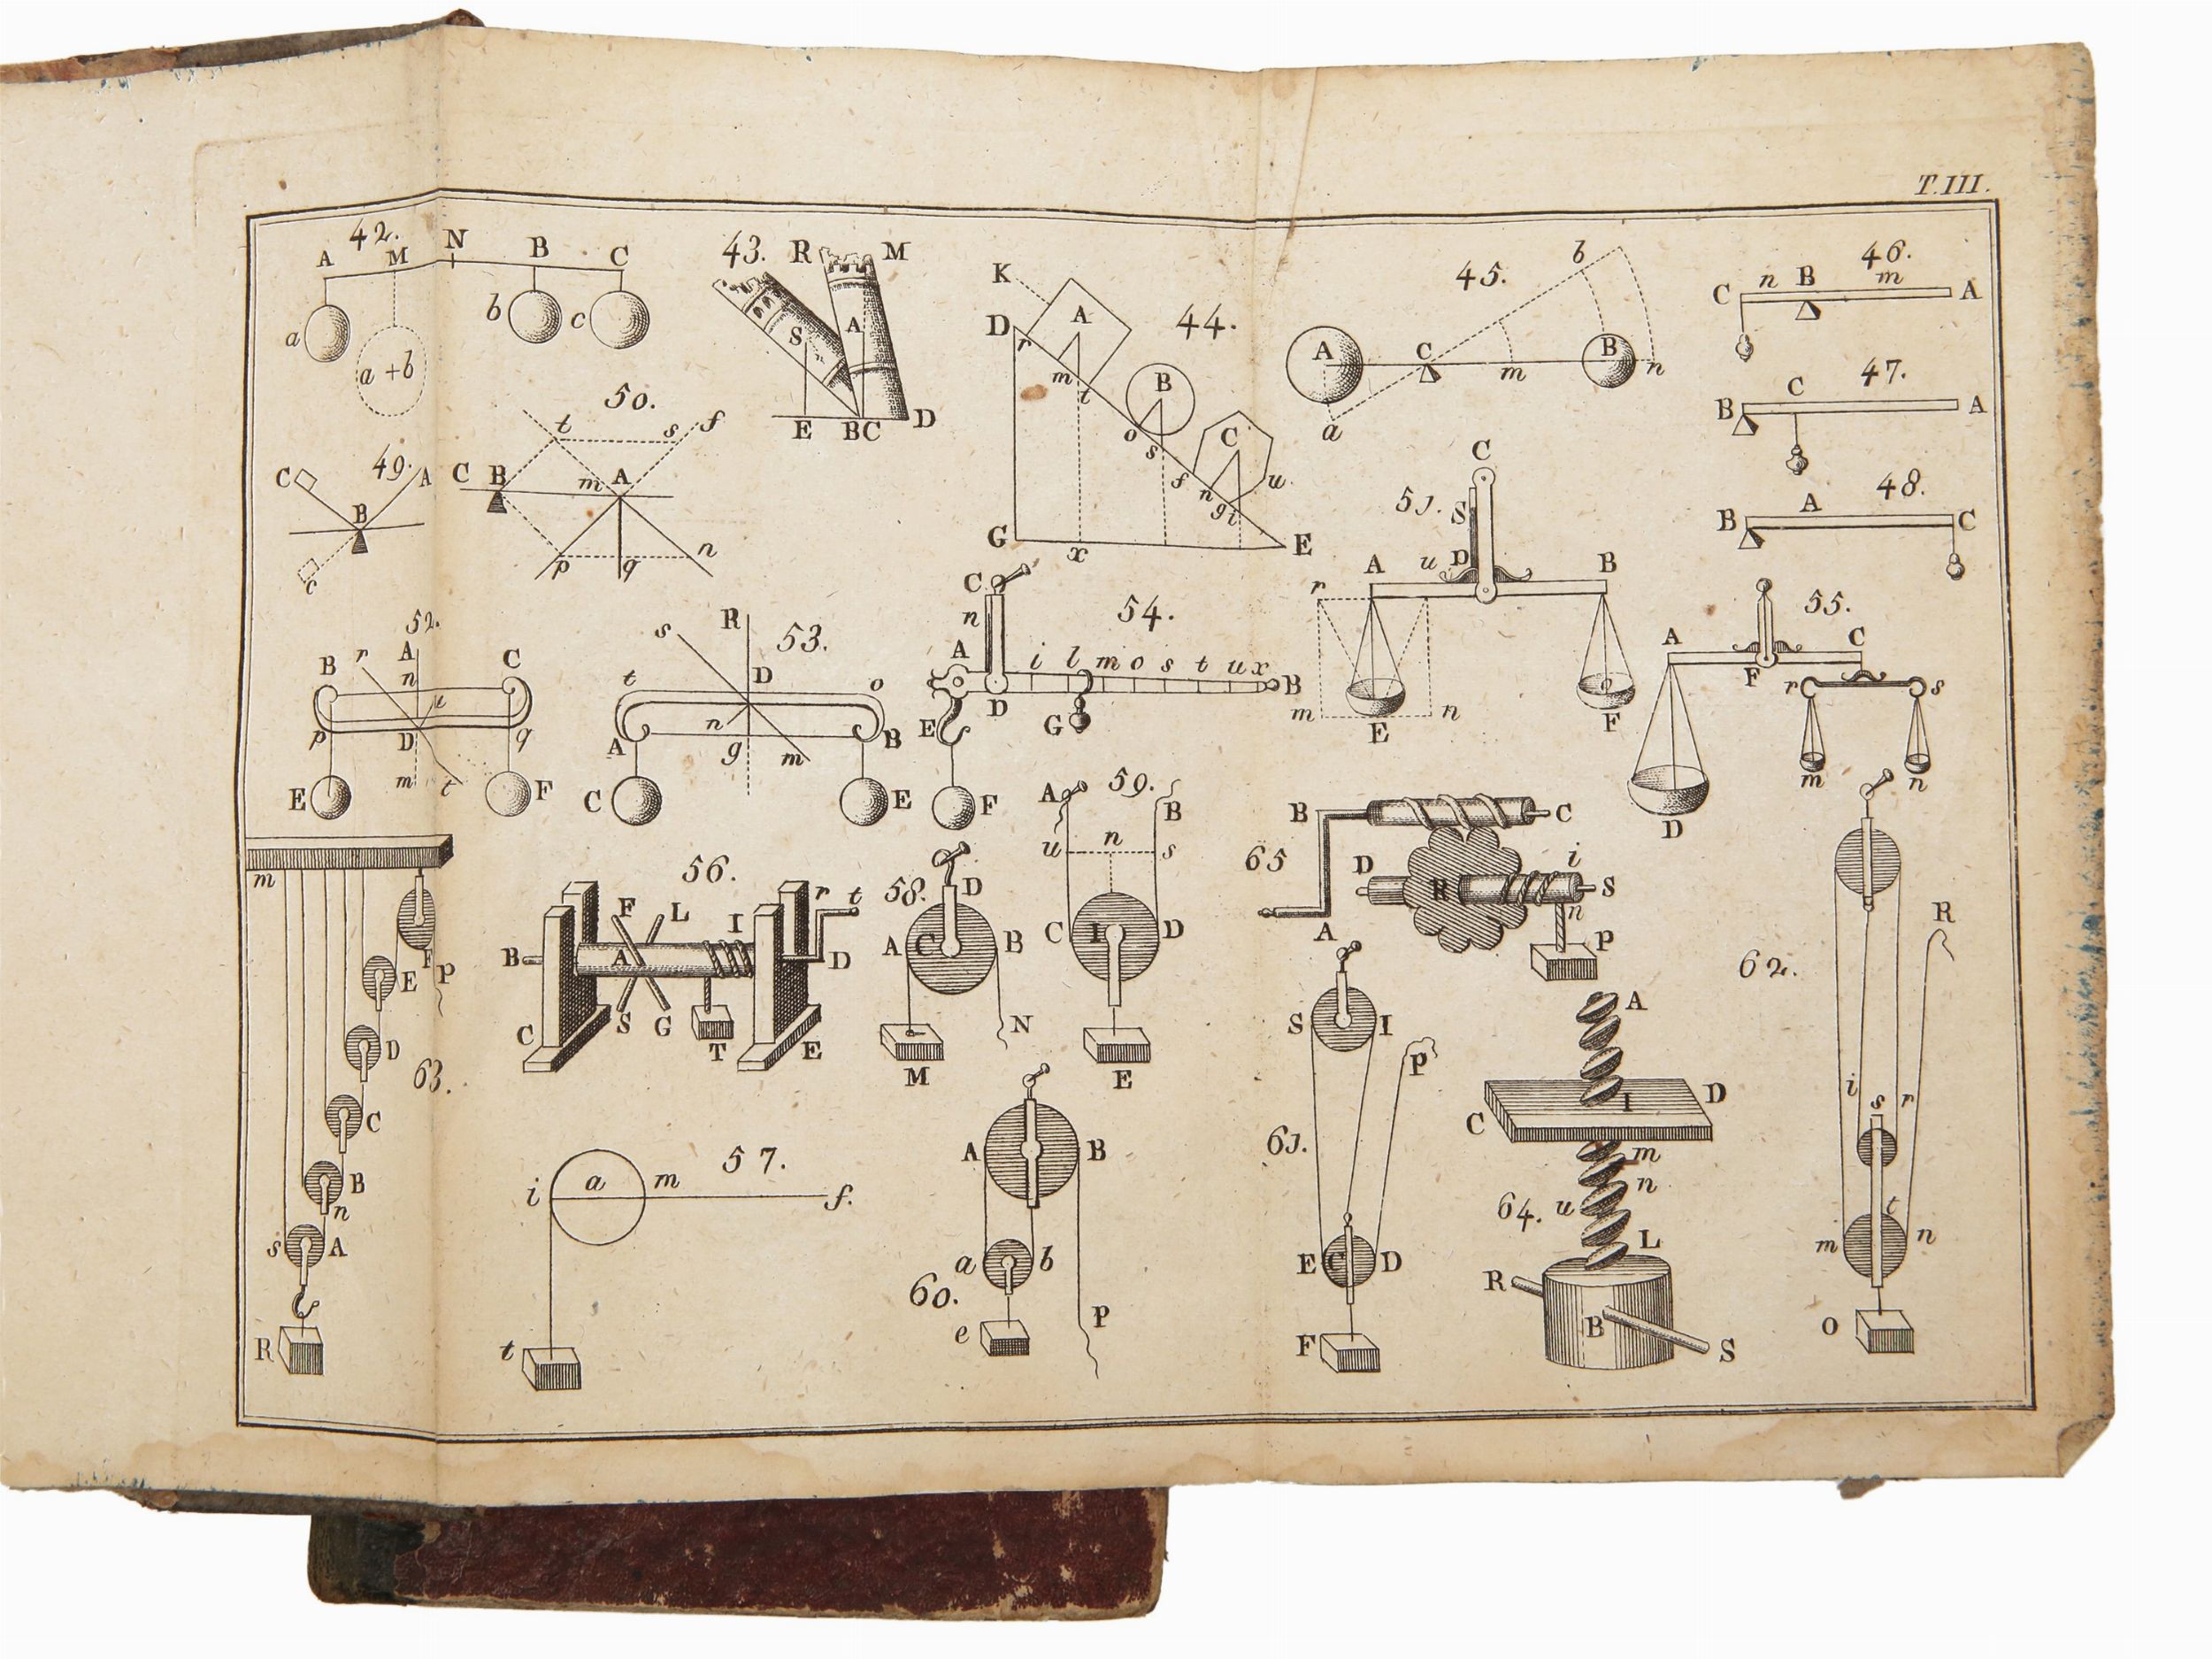 T.III.
42.
A M N B C
a b c
a + b
43.
R M
S A
E B C D
44.
K
D r A
m t B
o s C
f n g i u
G x E
45.
b
A C m B n
a
46.
C n B m A
47.
B C A
48.
B A C
49.
C A
B
c
50.
t s f
C B m A
p q n
51.
C
S
D
A u B
r
m E n F
52.
B r A C
n u
p D q
E m t F
53.
s R
t D o
A n B
g m
C E
54.
C
n
A i l m o s t u x B
D
E G
F
55.
A C
F r s
m n
D
56.
F L I r t
B A D
C S G T E
57.
i a m f.
t
58.
D
A C B
N
M
59.
A B
u n s
C I D
E
60.
A B
a b
e P
61.
S I P
E C D
F
62.
R
i s r
t
m n
O
63.
m
F P
E
D
C
B
n
s A
R
64.
A
C I D
m
n
u
L
R B S
65
B C
D R i S
n
A P